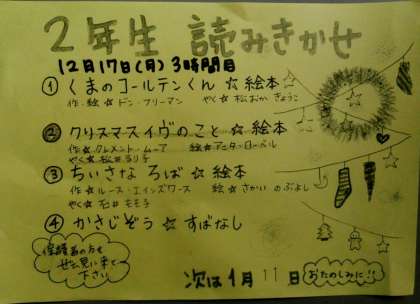 2年生 読みきかせ
12月17日(月) 3時間目
① くまのコールテンくん ☆ 絵本
作・絵☆ドン・フリーマン やく☆松おか きょうこ
② クリスマスイヴのこと ☆ 絵本
作☆クレメント・ムーア 絵☆アニタ・ローベル
やく☆松井るり子
③ ちいさな ろば ☆ 絵本
作☆ルース・エインズワース 絵☆さかい のぶよし
やく☆石井 モモ子
④ かさじぞう ☆ すばなし
保護者の方も
ぜひ見に来て
下さい
次は1月11日
おたのしみに!!